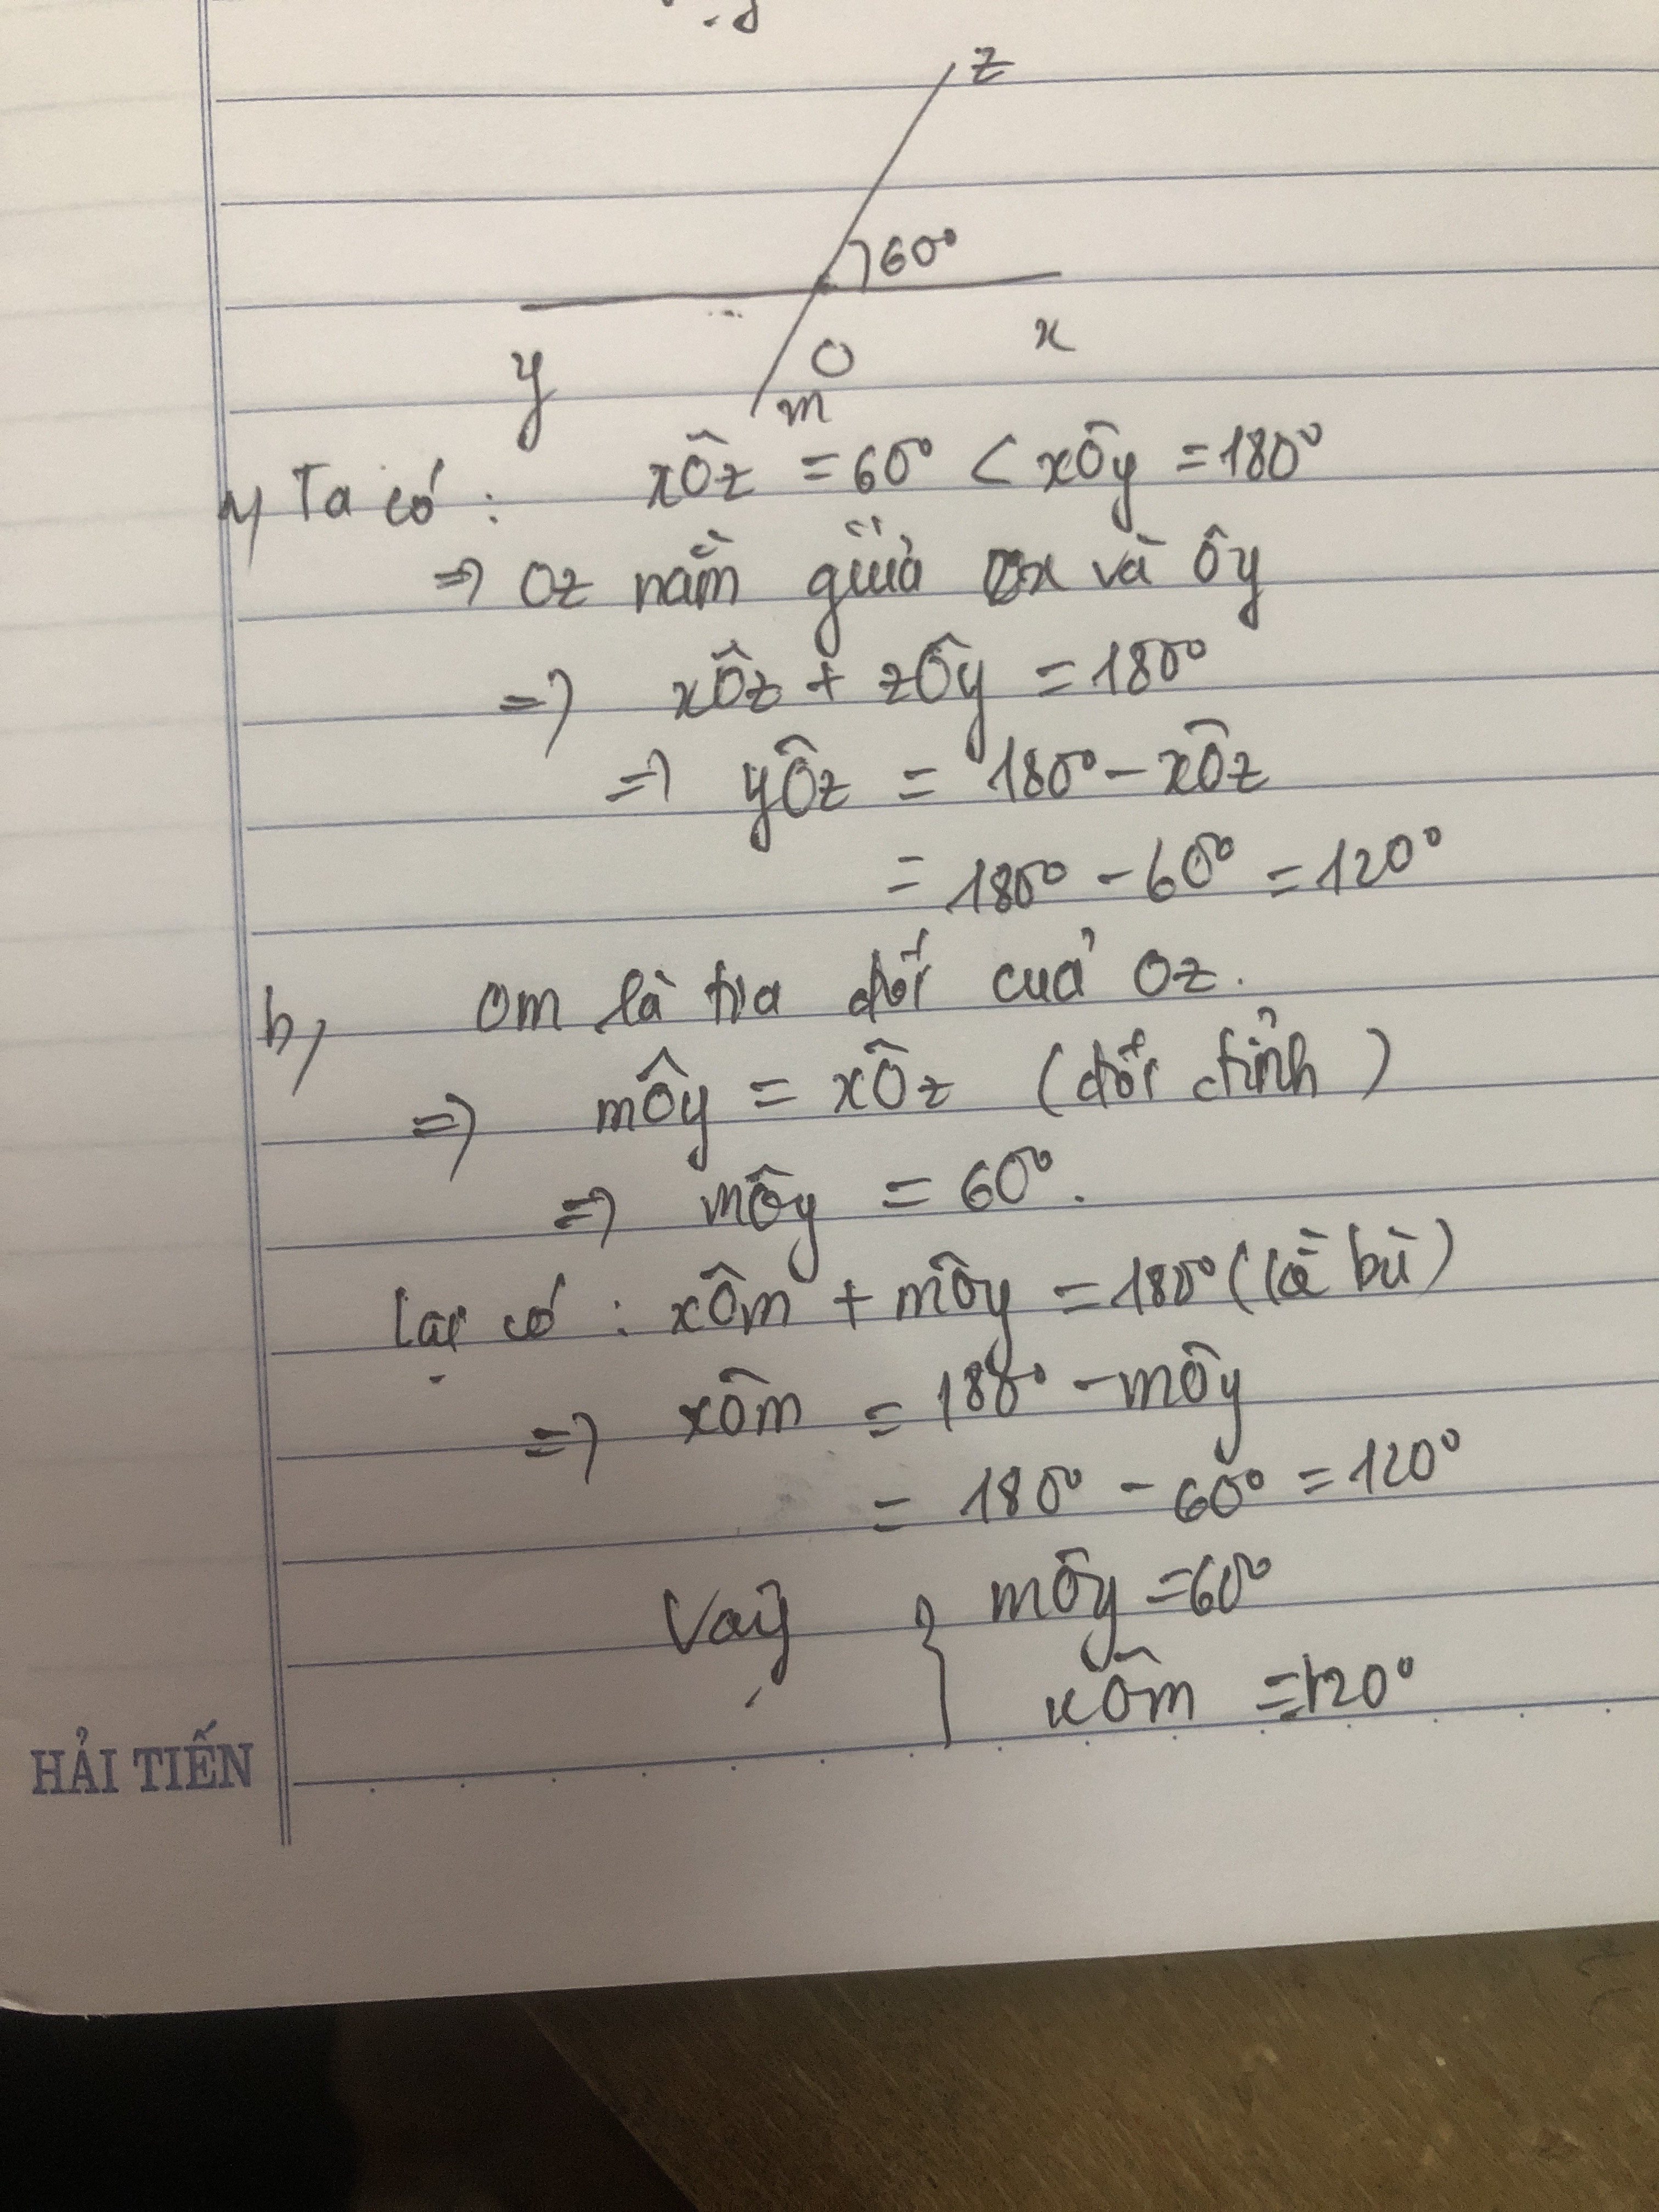 z
60°
y
O
x
m
a, Ta có : xÔz = 60° < xÔy = 180°
=> Oz nằm giữa Ox và Ôy
=> xÔz + zÔy = 180°
=> yÔz = 180° - xÔz
= 180° - 60° = 120°
b, Om là tia đối của Oz.
=> mÔy = xÔz (đối đỉnh)
=> mÔy = 60°.
Lại có : xÔm + mÔy = 180° (kề bù)
=> xÔm = 180° - mÔy
= 180° - 60° = 120°
Vậy { mÔy = 60°
xÔm = 120°
HẢI TIẾN